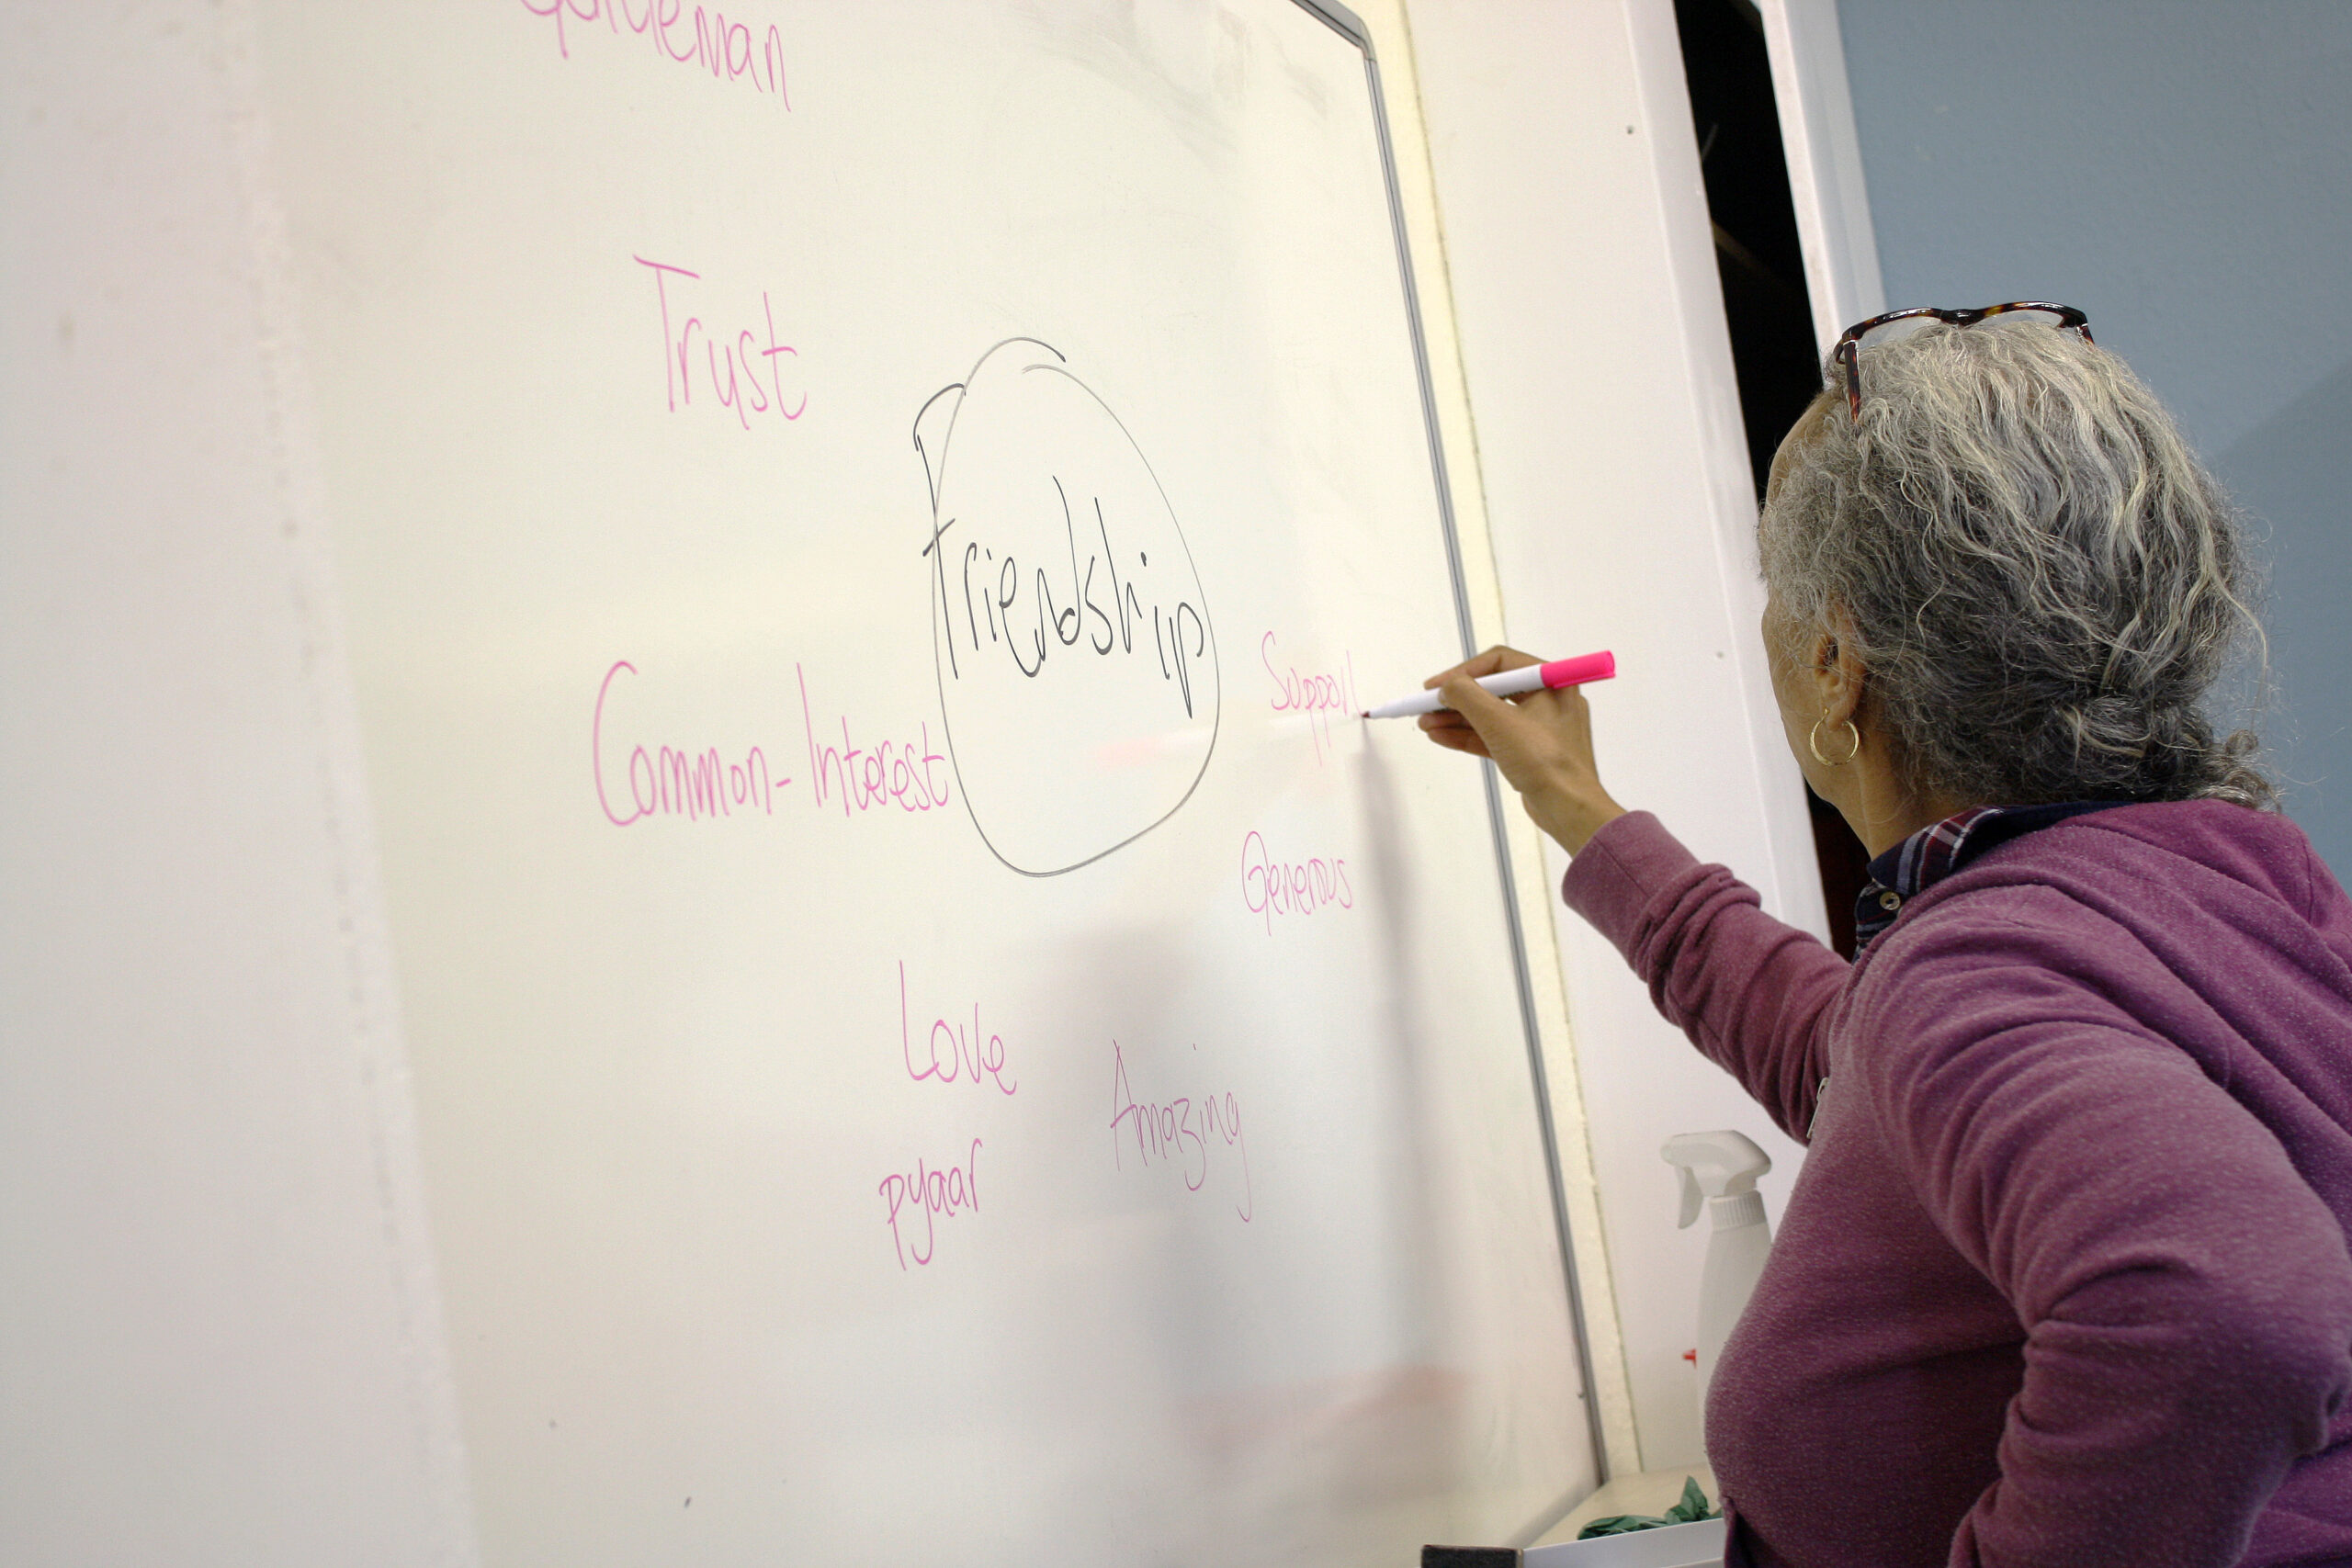 Trust
Friendship
Common-Interest
Support
Generous
Love
pyaar
Amazing